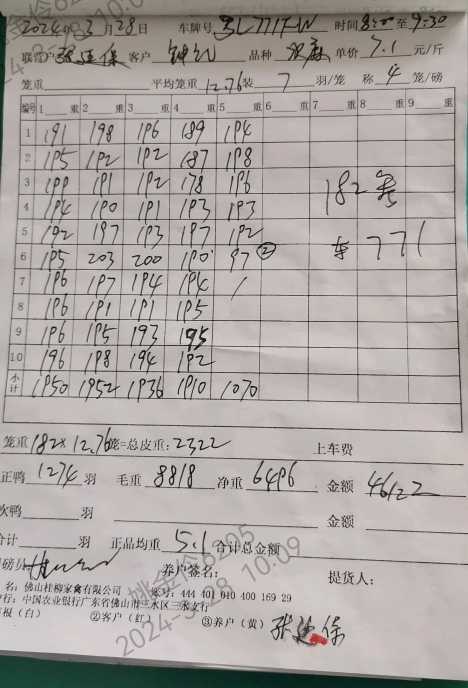 2024年3月28日 车牌号 时间8:00至9:30
客户 品种 单价7.1元/斤
笼重 平均笼重12.76装7羽/笼 称4笼/磅
编号 1 重 2 重 3 重 4 重 5 重 6 重 7 重 8 重 9 重
1 191 198 196 189 194
2 195 192 192 187 198
3 199 191 192 178 196
4 194 190 191 193 193
5 192 197 193 197 192
6 195 203 200 190 97 ②
7 196 197 194 194 /
8 196 191 191 195
9 196 195 193 195
10 196 198 194 192
小计 1950 1952 1936 1910 1070
182条
车771
笼重182×12.76笼=总皮重:2322 上车费
正鸭1274羽 毛重8818净重6496 金额46122
次鸭 羽 金额
合计 羽 正品均重5.1合计总金额
司磅员 养户签名: 提货人:
名:佛山桂柳家禽有限公司 账号:444 401 010 400 169 29
行:中国农业银行广东省佛山市三水区三水支行
存根(白) ②客户(红) ③养户(黄)
6205
2024-3-28 10:09